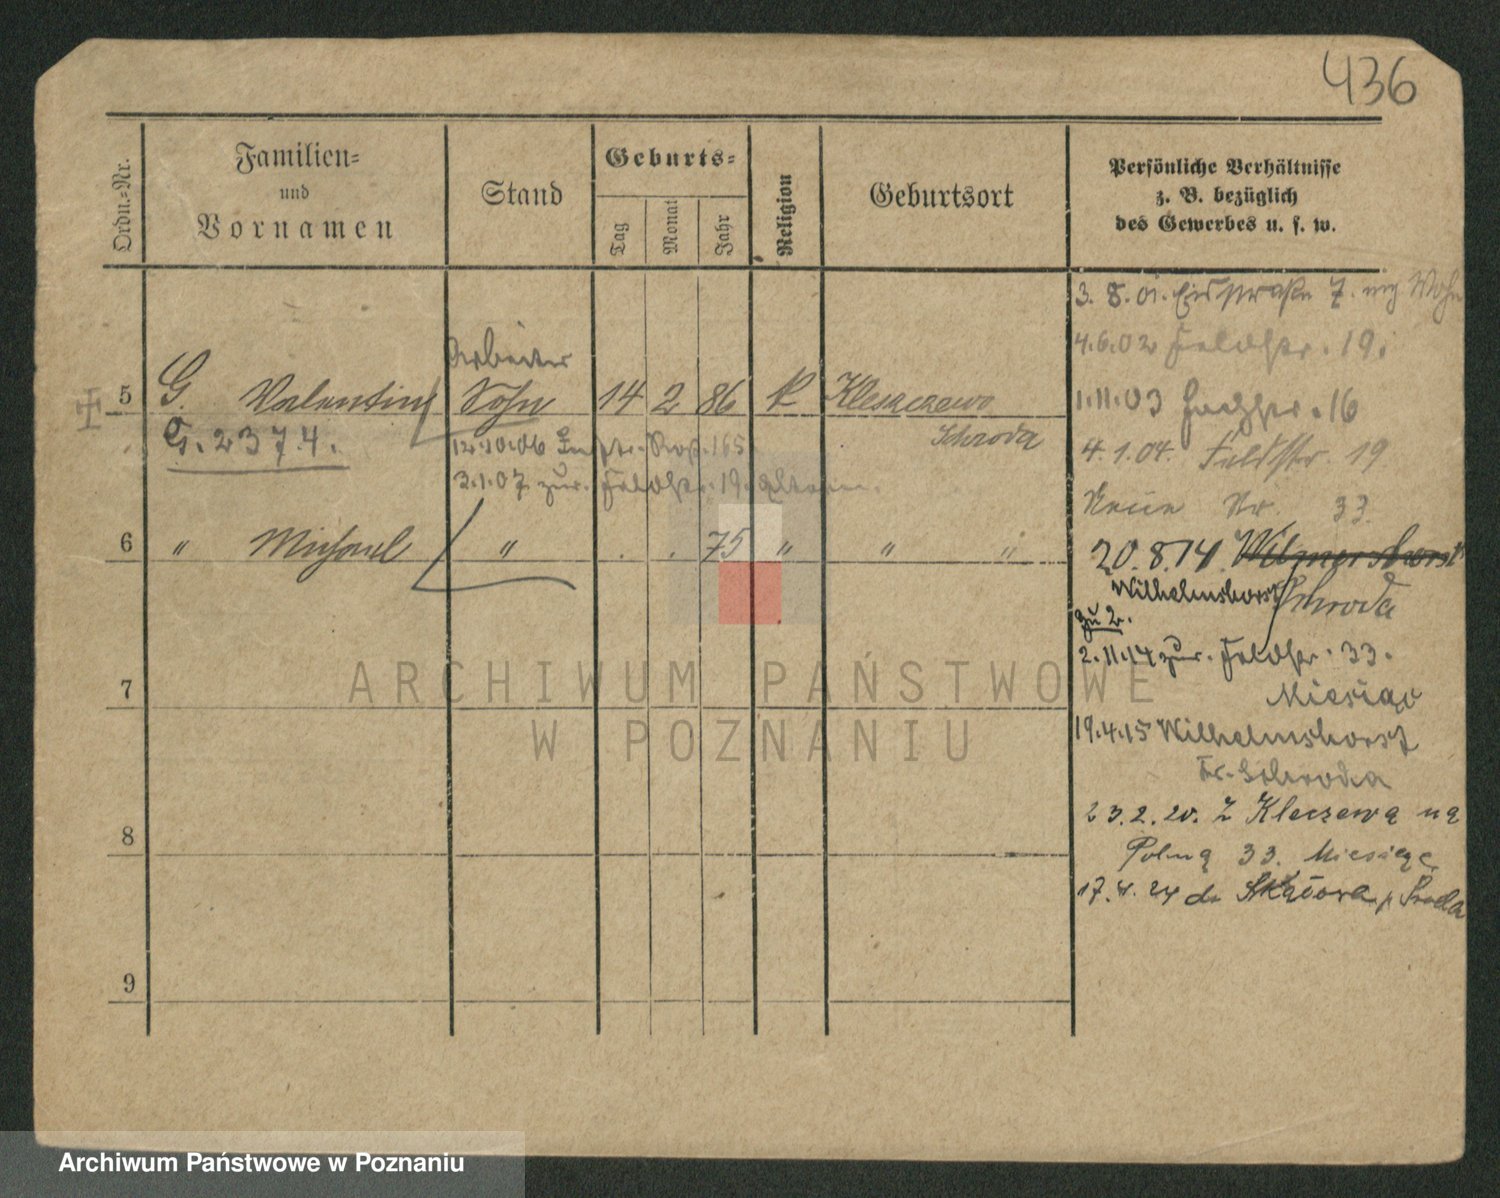 436
Ordn.-Nr.
Familien-
und
Vornamen
Stand
Geburts-
Tag
Monat
Jahr
Religion
Geburtsort
Persönliche Verhältnisse
z. B. bezüglich
des Gewerbes u. s. w.
3. 8. 01. 7.
4.6.02 Feldstr. 19.
Arbeiter
5 G. Valentin Sohn 14 2 86 K Kleszczewo
Schroda
1.11.03 16
G. 2374.
12.10.06 Inftr. Reg. 165.
3.1.07. zur. Feldstr. 19. Eltern.
4.1.04. Feldstr. 19
Neue Nr. 33.
6 " Michael " . . 75 " " "
20.8.14. Wilmershorst
Wilhelmshorst Schroda
zu 2.
2.11.14 zur. Feldstr. 33.
Miesiąc
7
19.4.15 Wilhelmshorst
Kr. Schroda
23.2.20. Z Kleczewa na
Polną 33. Miesiąc
8
17.4.24 do p. Środa
9
ARCHIWUM PAŃSTWOWE
W POZNANIU
Archiwum Państwowe w Poznaniu